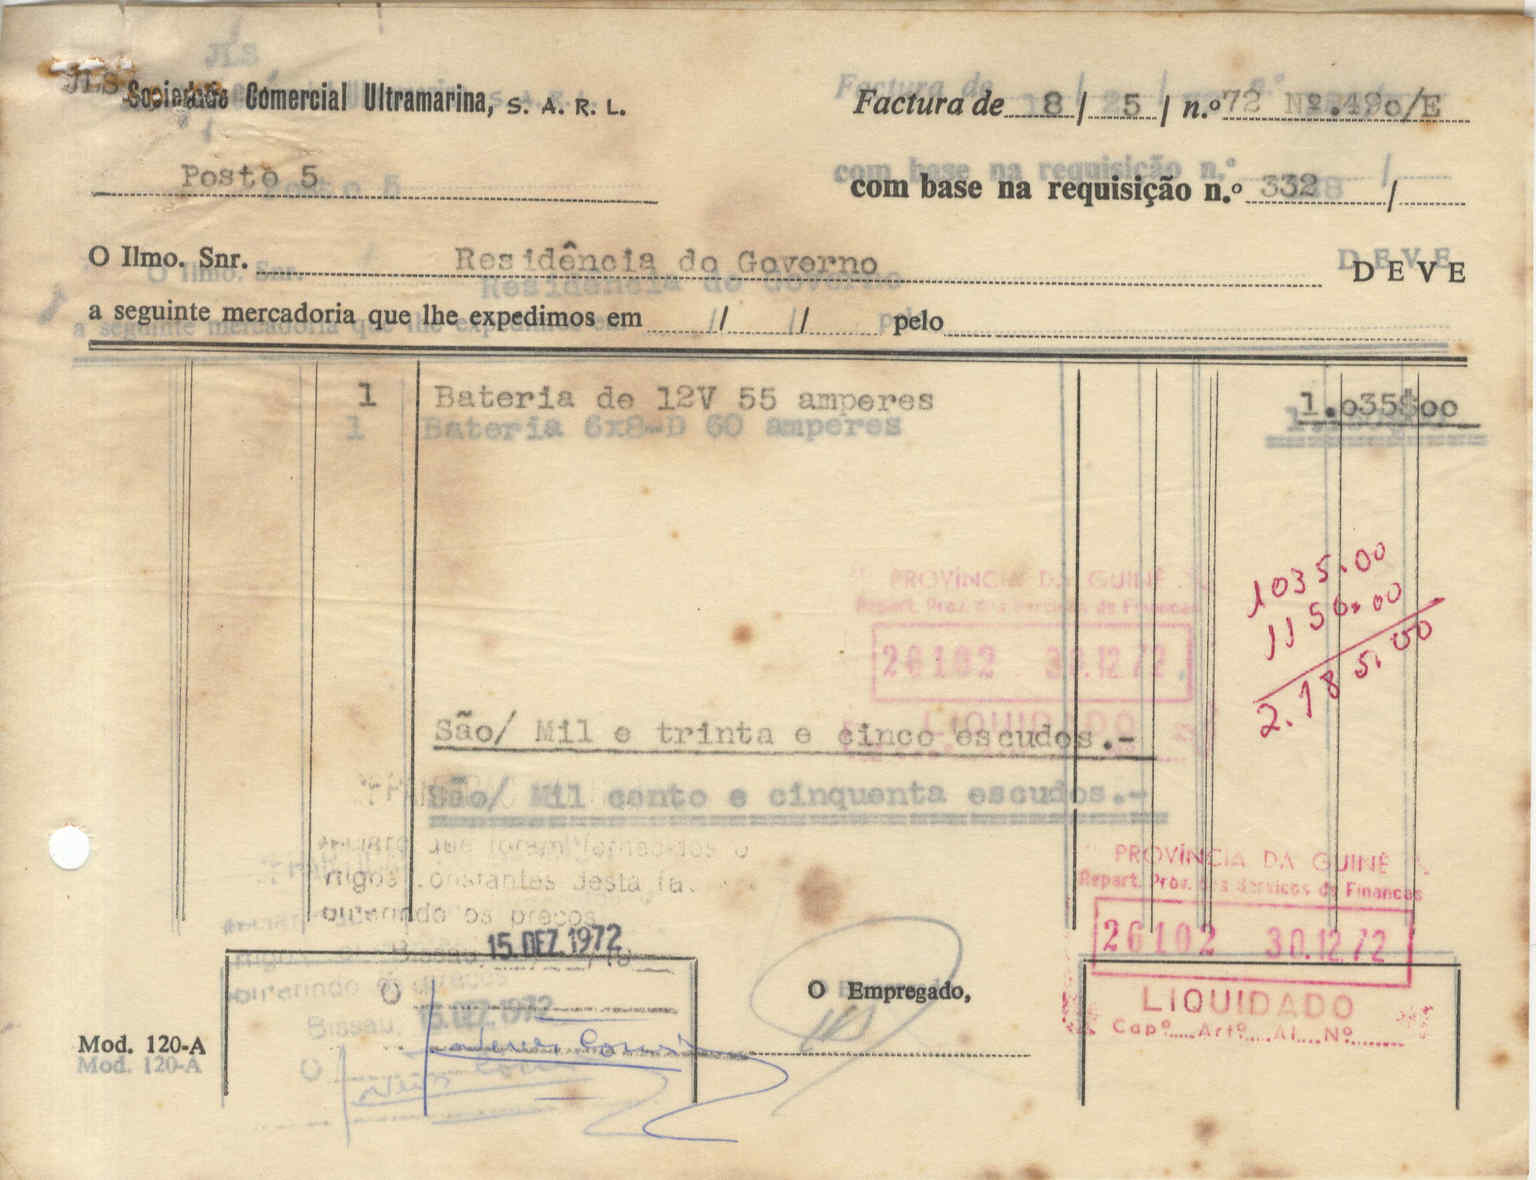 JLS
JLS Sociedade Comercial Ultramarina, S. A. R. L.
Factura de 18 / 25 / n.º 72 Nº.490/E
Posto 5
com base na requisição n.º 332 /
O Ilmo. Snr. Residência do Governo DEVE
Residência do Governo
a seguinte mercadoria que lhe expedimos em / / pelo
1 Bateria de 12V 55 amperes 1.035$00
1 Bateria 6x8-D 60 amperes
1035.00
1150.00
2.185.00
PROVÍNCIA DA GUINÉ
Repart. Prov. dos Serviços de Finanças
26102 30.12.72
LIQUIDADO
São/ Mil e trinta e cinco escudos.-
São/ Mil cento e cinquenta escudos.-
que foram fornecidos o
constantes desta fa
os preços
Bissau, 15. DEZ. 1972
O
Bissau, 15. DEZ. 1972
O
O Empregado,
PROVÍNCIA DA GUINÉ
Repart. Prov. dos Serviços de Finanças
26102 30.12.72
LIQUIDADO
Capº.....Artº.....Al.....Nº.......
Mod. 120-A
Mod. 120-A